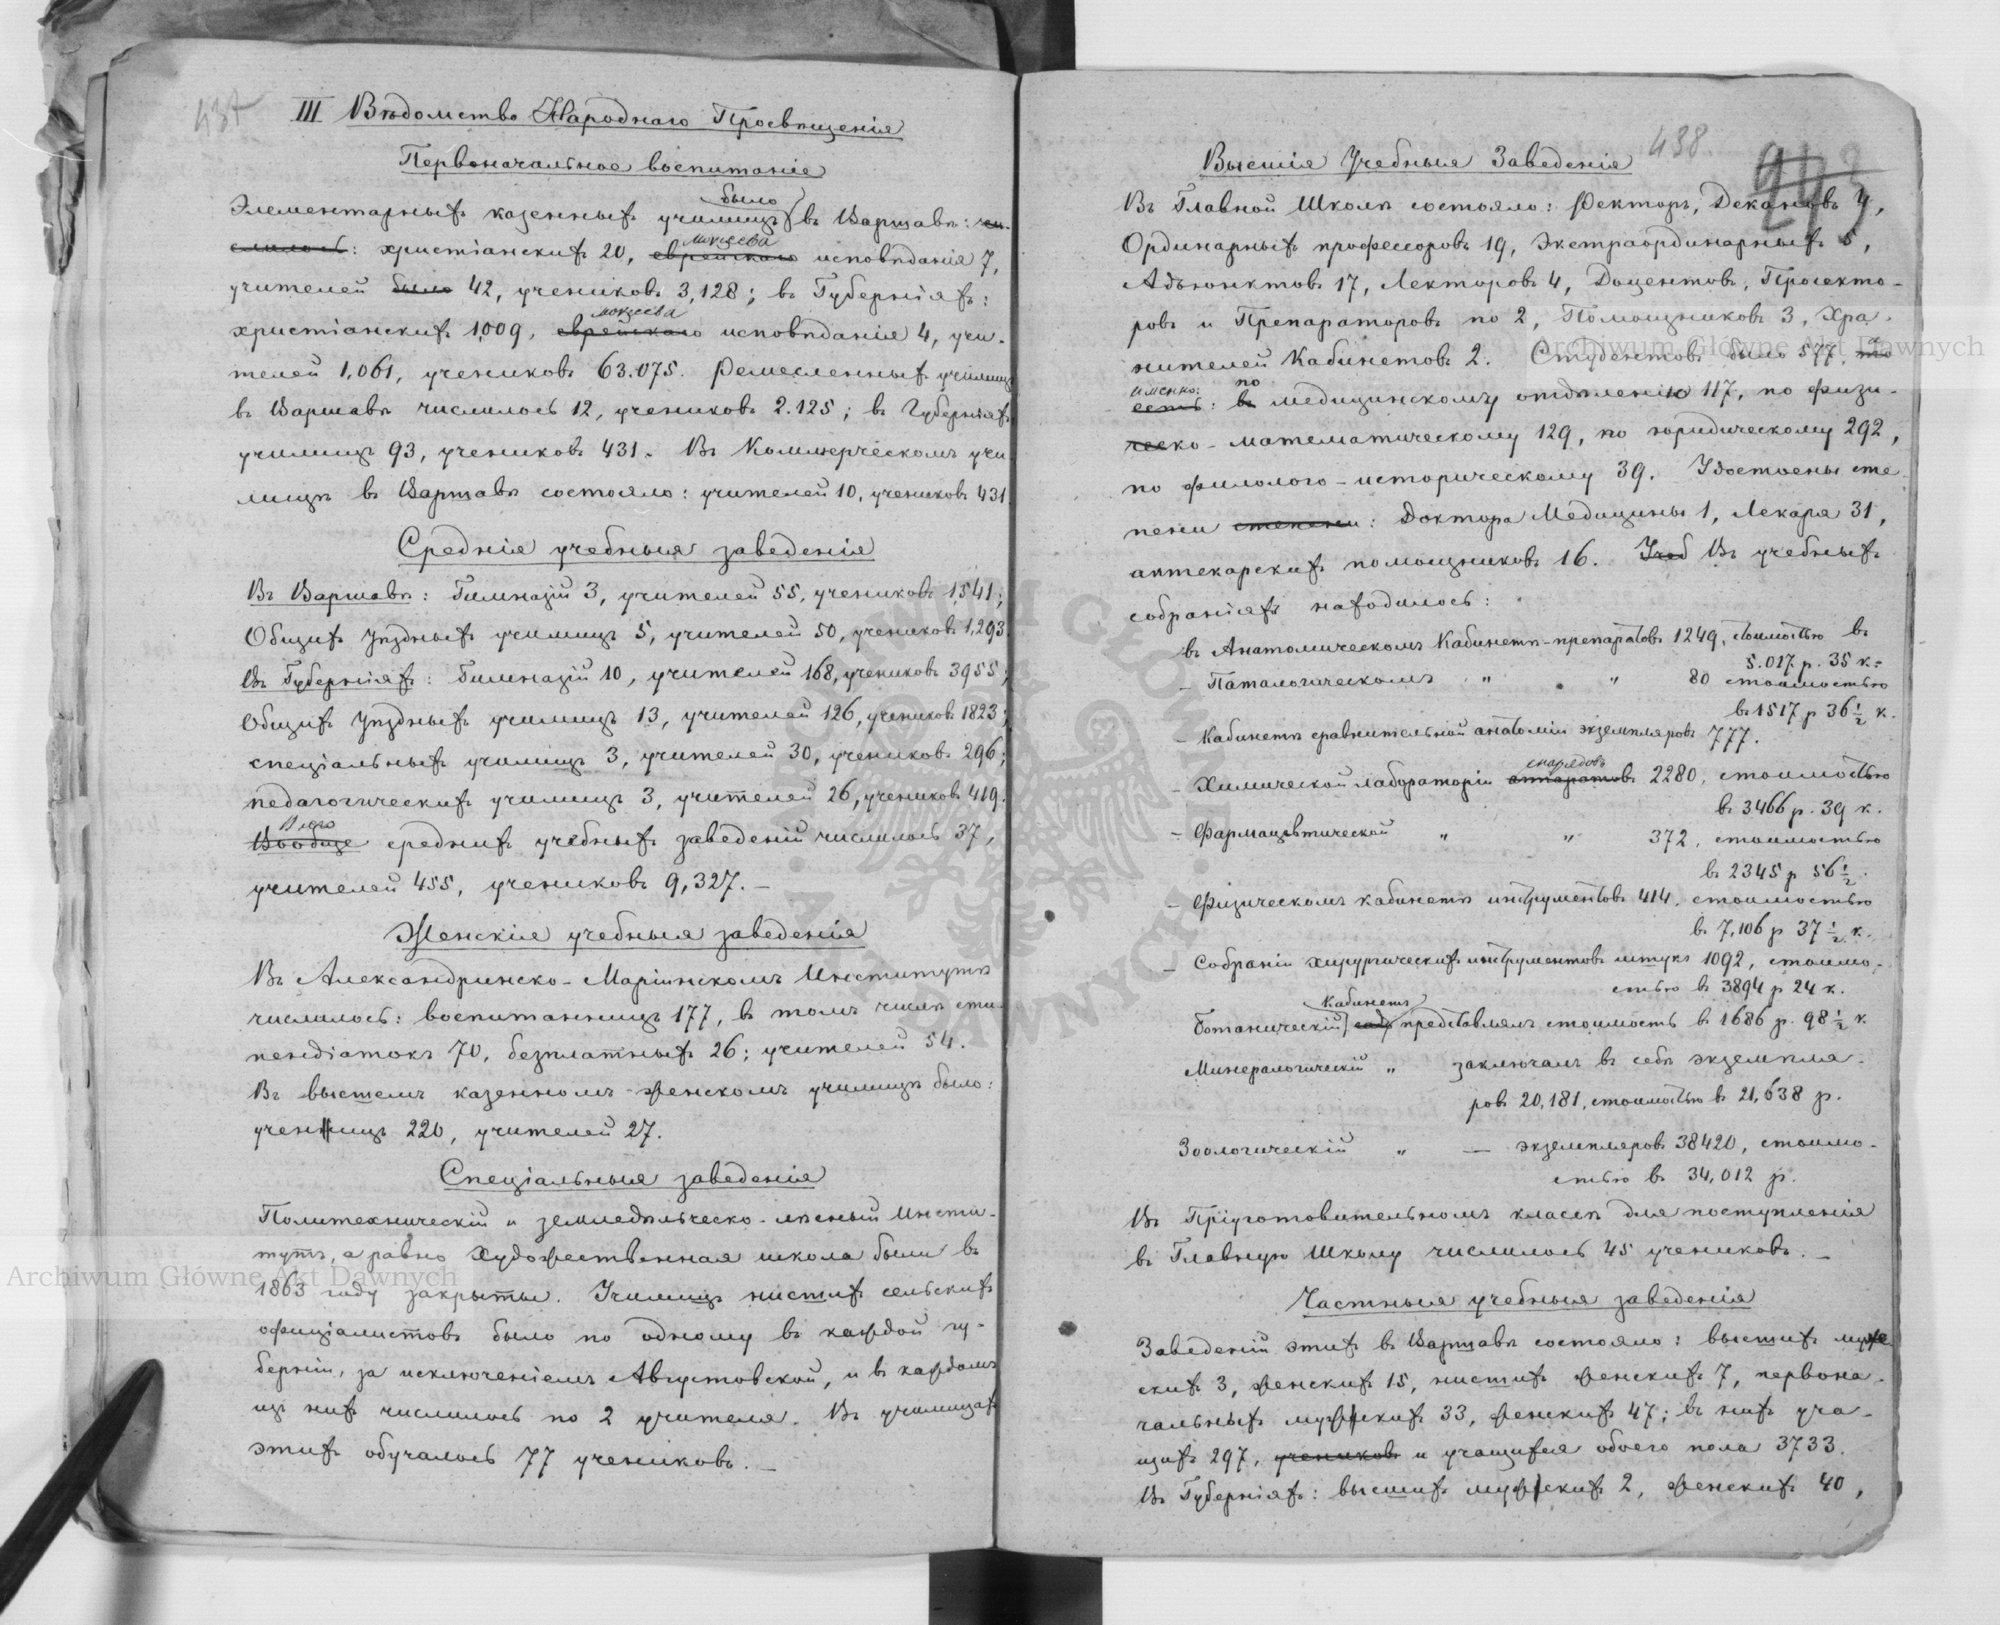 437
III Вѣдомство Народнаго Просвѣщенія
Первоначальное воспитаніе
было
Элементарныхъ казенныхъ училищъ въ Варшавѣ: чи-
слилось: христіанскихъ 20, еврейскаго Моисеева исповѣданія 7,
учителей было 42, учениковъ 3,128; въ Губерніяхъ:
христіанскихъ 1,009, еврейскаго Моисеева исповѣданія 4, учи-
телей 1,061, учениковъ 63.075. Ремесленныхъ училищъ
въ Варшавѣ числилось 12, учениковъ 2.125; въ Губерніяхъ
училищъ 93, учениковъ 431. Въ Коммерческомъ учи
лищѣ въ Варшавѣ состояло: учителей 10, учениковъ 431.
Среднія учебныя заведенія
Въ Варшавѣ: Гимназій 3, учителей 55, учениковъ 1,541;
Общихъ Уѣздныхъ училищъ 5, учителей 50, учениковъ 1,293.
Въ Губерніяхъ: Гимназій 10, учителей 168, учениковъ 3955;
Общихъ Уѣздныхъ училищъ 13, учителей 126, учениковъ 1823;
спеціальныхъ училищъ 3, учителей 30, учениковъ 296;
педагогическихъ училищъ 3, учителей 26, учениковъ 419.
Всего
Вообще среднихъ учебныхъ заведеній числилось 37,
учителей 455, учениковъ 9,327. —
Женскія учебныя заведенія
Въ Александринско-Маріинскомъ Институтѣ
числилось: воспитанницъ 177, въ томъ числѣ сти-
пендіатокъ 70, безплатныхъ 26; учителей 54.
Въ высшемъ казенномъ женскомъ училищѣ было:
ученицъ 220, учителей 27.
Спеціальныя заведенія
Политехническій и земледѣльческо-лѣсный Инсти-
тутъ, а равно Художественная школа были въ
1863 году закрыты. Училищъ нисшихъ сельскихъ
офиціалистовъ было по одному въ каждой гу-
берніи, за исключеніемъ Августовской, и въ каждомъ
изъ нихъ числилось по 2 учителя. Въ училищахъ
этихъ обучалось 77 учениковъ. —
438
Высшія Учебныя Заведенія
Въ Главной Школѣ состояло: Ректоръ, Декановъ 4,
Ординарныхъ профессоровъ 19, Экстраординарныхъ 5,
Адъюнктовъ 17, Лекторовъ 4, Доцентовъ, Прозекто-
ровъ и Препараторовъ по 2, Помощниковъ 3, Хра-
нителей Кабинетовъ 2. Студентовъ было 577, то
именно: по
есть: въ медицинскому отдѣленію 117, по физи-
ческо-математическому 129, по юридическому 292,
по филолого-историческому 39. Удостоены сте
пени степени: Доктора Медицины 1, Лекаря 31,
аптекарскихъ помощниковъ 16. Учеб Въ учебныхъ
собраніяхъ находилось:
въ Анатомическомъ Кабинетѣ-препаратовъ 1249, стоимостью въ
5.017 р. 35 к.
— Паталогическомъ " " 80 стоимостью
въ 1517 р 36 1/2 к.
— Кабинетѣ сравнительной анатоміи экземпляровъ 777.
снарядовъ
— Химической лабораторіи аппаратовъ 2280, стоимостью
въ 3466 р. 39 к.
— Фармацевтической " " 372, стоимостью
въ 2345 р 56 1/2.
— Физическомъ кабинетѣ инструментовъ 414, стоимостью
въ 7,106 р 37 1/2 к.
— Собраніи хирургическихъ инструментовъ штукъ 1092, стоимо-
стью въ 3894 р 24 к.
Кабинетъ
Ботаническій садъ представлялъ стоимость въ 1686 р. 98 1/2 к
Минералогическій " заключалъ въ себѣ экземпля-
ровъ 20,181, стоимостью въ 21,638 р.
Зоологическій " — экземпляровъ 38420, стоимо-
стью въ 34,012 р.
Въ Пріуготовительномъ классѣ для поступленія
въ Главную Школу числилось 45 учениковъ. —
Частныя учебныя заведенія
Заведеній этихъ въ Варшавѣ состояло: высшихъ муж
скихъ 3, женскихъ 15, нисшихъ женскихъ 7, первона-
чальныхъ мужскихъ 33, женскихъ 47; въ нихъ уча-
щихъ 297, учениковъ и учащихся обоего пола 3733.
Въ Губерніяхъ: высшихъ мужскихъ 2, женскихъ 40,
Archiwum Główne Akt Dawnych
Archiwum Główne Akt Dawnych
ARCHIWUM GŁÓWNE AKT DAWNYCH